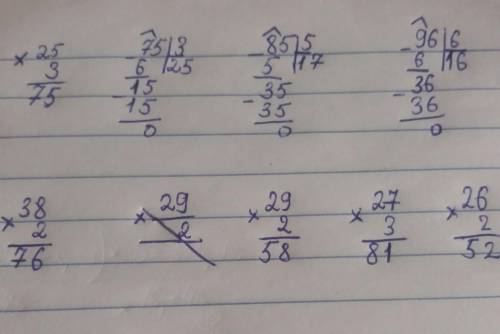 × 25
3
75
- 75 | 3
6 | 25
- 15
15
0
- 85 | 5
5 | 17
- 35
35
0
- 96 | 6
6 | 16
- 36
36
0
× 38
2
76
× 29
2
× 29
2
58
× 27
3
81
× 26
2
52